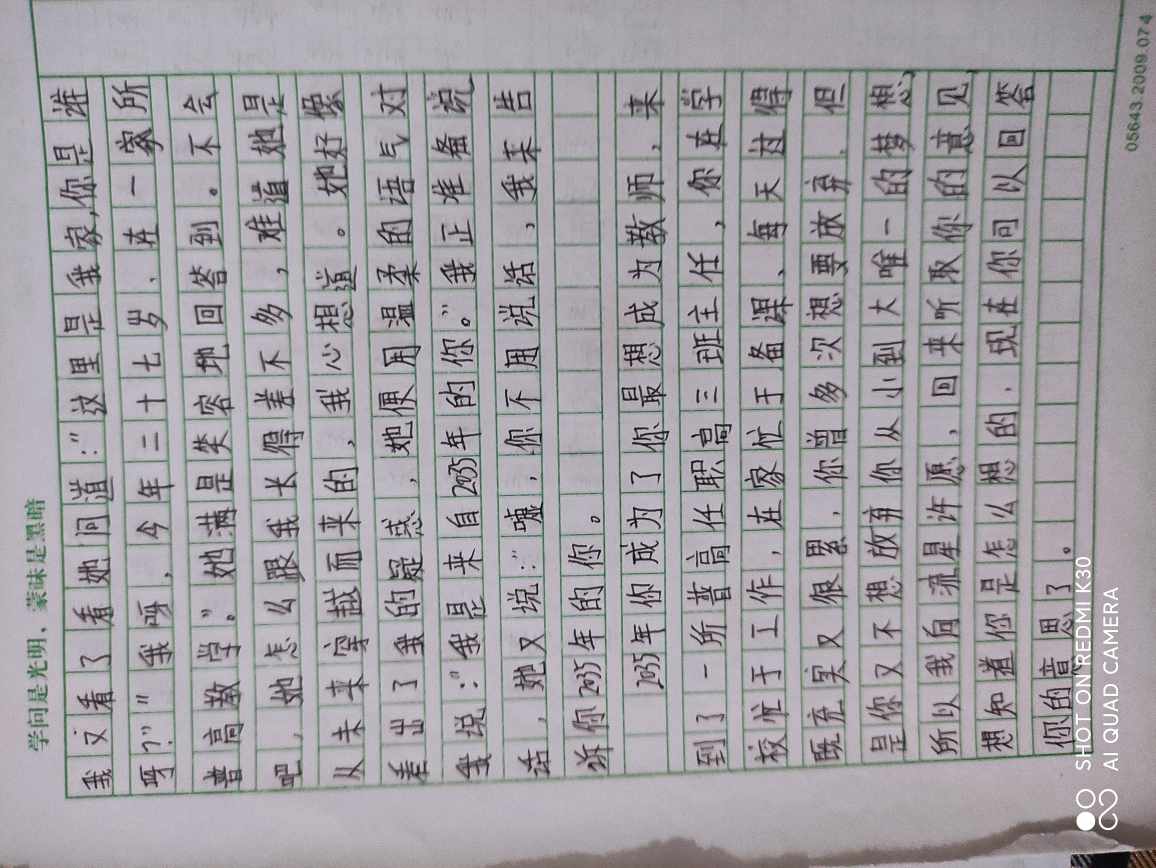 学问是光明，蒙昧是黑暗
我又看了看她问道：“这里是我家，你是谁
呀？”“我呀，今年二十七岁，在一家所
普高教学。”她满是笑容地回答到。不会
吧，她怎么跟我长得差不多，难道她是
从未来穿越而来的，我心想道。她好像
看出了我的疑惑，她便用温柔的语气对
我说：“我是来自2035年的你。”我正准备说
话，她又说：“嘘，你不用说话，我来告
诉你2035年的你。
2035年你成为了你最想成为教师，来
到了一所普高任职高三班主任，你在学
校忙于工作，在家忙于备课、每天过得
既充实又很累，你曾多次想要放弃，但
是你又不想放弃你从小到大唯一的梦想，
所以我向流星许愿，回来听取你的意见
想知道你是怎么想的，现在你可以回答
你的意思了。
SHOT ON REDMI K30
AI QUAD CAMERA
05643.2009.074